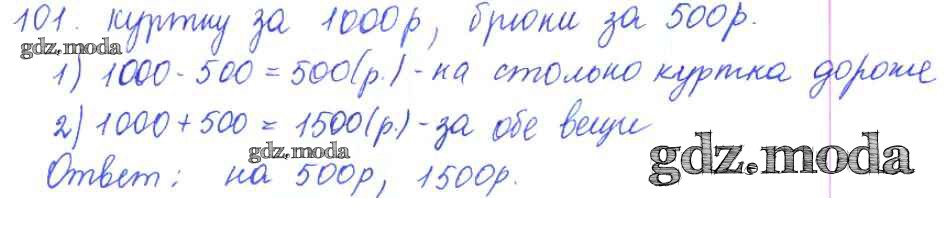 101. куртку за 1000р, брюки за 500р.
gdz.moda
1) 1000 - 500 = 500(р.) - на столько куртка дороже
2) 1000 + 500 = 1500(р.) - за обе вещи
gdz.moda
gdz.moda
Ответ: на 500р, 1500р.